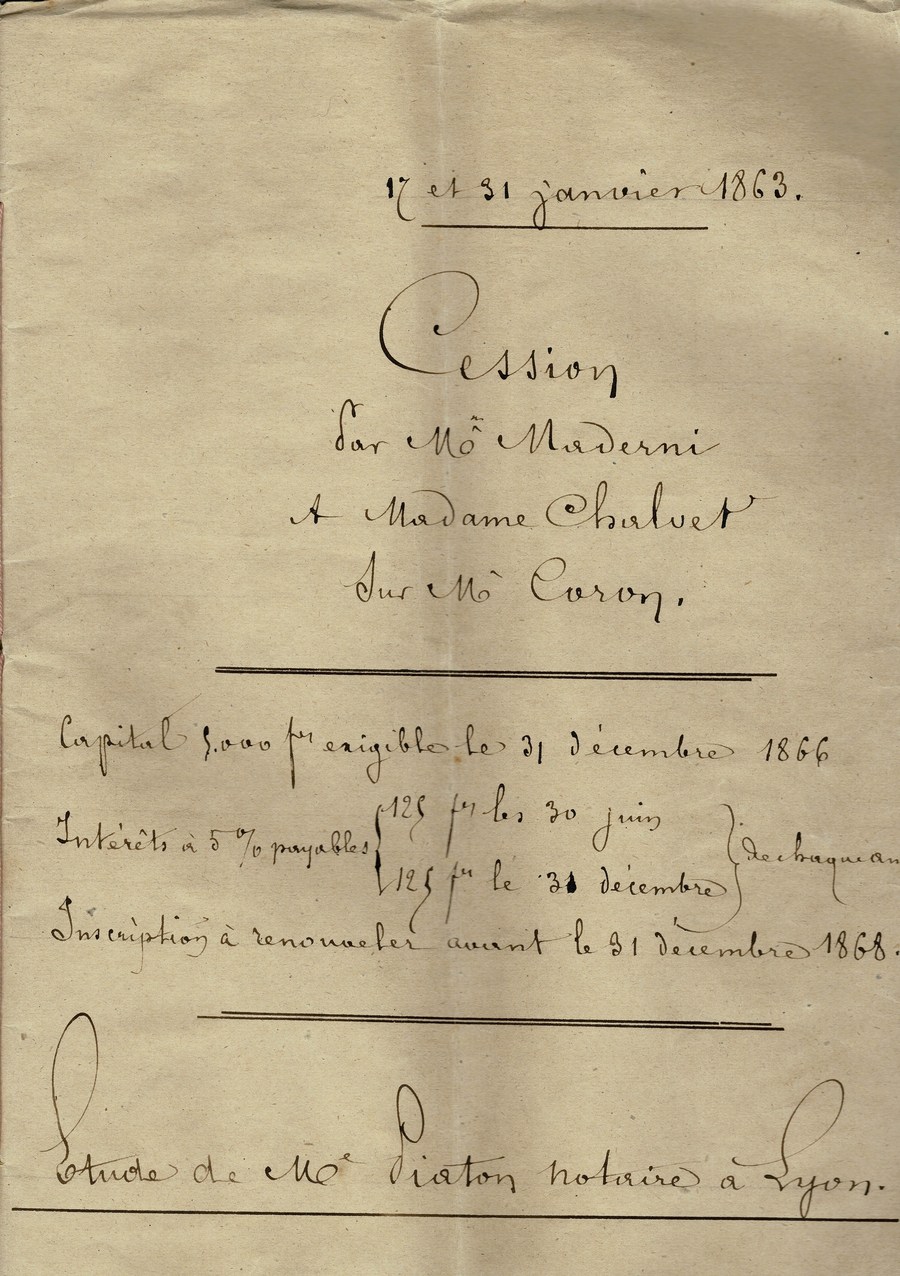 17 et 31 janvier 1863.
Cession
Par Mr Maderni
A Madame Chalvet
Sur Mr Coron.
Capital 5.000 frs exigible le 31 décembre 1866
Intérêts à 5 % payables { 125 frs les 30 juin } de chaque an
125 frs le 31 décembre
Inscription à renouveler avant le 31 décembre 1868.
Etude de Me Piaton notaire à Lyon.